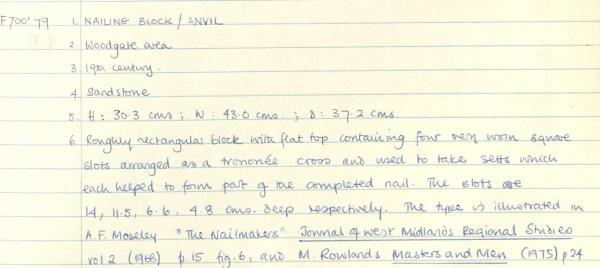 F700'79 1. NAILING BLOCK / ANVIL
2 Woodgate area
3 19th century.
4 Sandstone
5. H: 30.3 cms; W: 43.0 cms.; D: 37.2 cms.
6. Roughly rectangular block with flat top containing four very worn square
slots arranged as a trononée cross and used to take setts which
each helped to form part of the completed nail. The slots are
14, 11.5, 6.6, 4.8 cms. deep respectively. The type is illustrated in
A.F. Moseley "The Nailmakers" Journal of West Midlands Regional Studies
vol 2 (1968) p.15 fig.6, and M. Rowlands Masters and Men (1975) p24